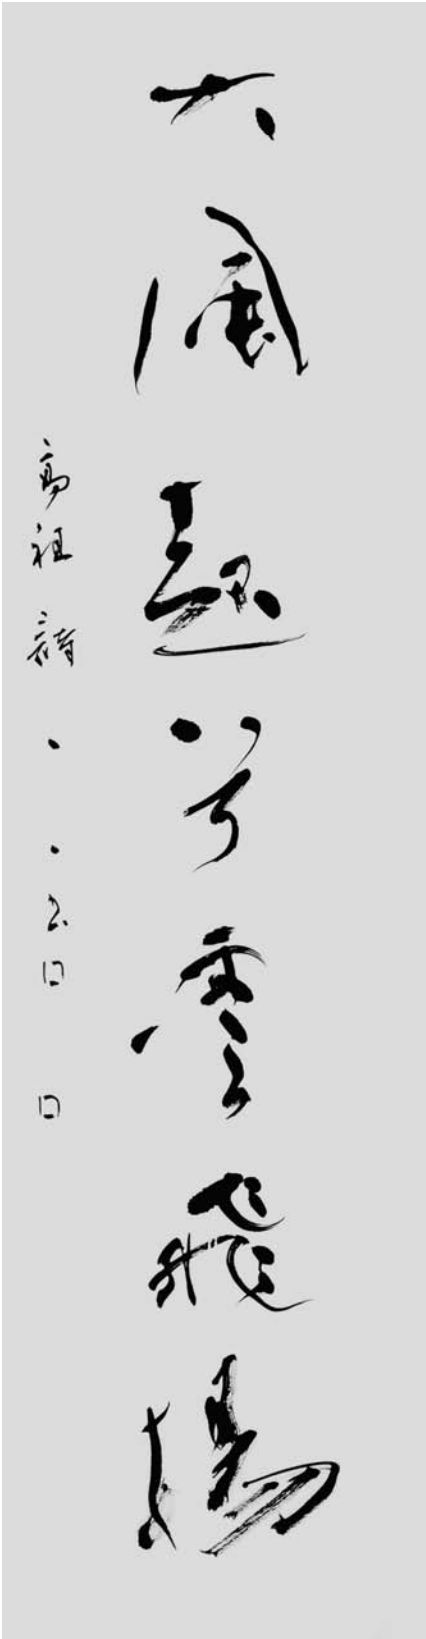 大風起兮雲飛揚
高祖詩